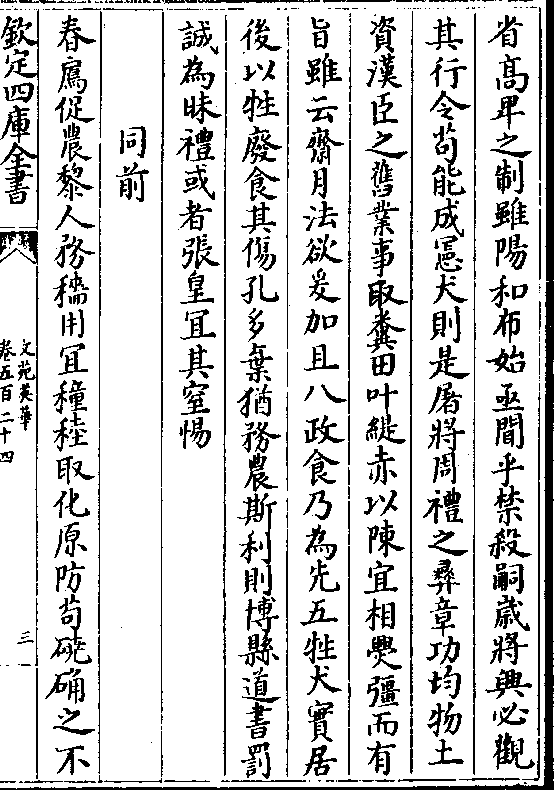 省髙卑之制雖陽和布始亟聞乎禁殺嗣歳將興必觀
其行令茍能成憲犬則是屠將周禮之彞章功均物土
資漢臣之舊業事取糞田叶緹赤以陳宜相㷼彊而有
旨雖云齋月法欲爰加且八政食乃為先五牲犬實居
後以牲廢食其傷孔多棄猶務農斯利則博縣道書罰
誠為昧禮或者張皇冝其窒惕
同前
春鳸促農黎人務穡用冝穜稑取化原防茍磽确之不
欽定四庫全書
文苑英華
卷五百二十四
三